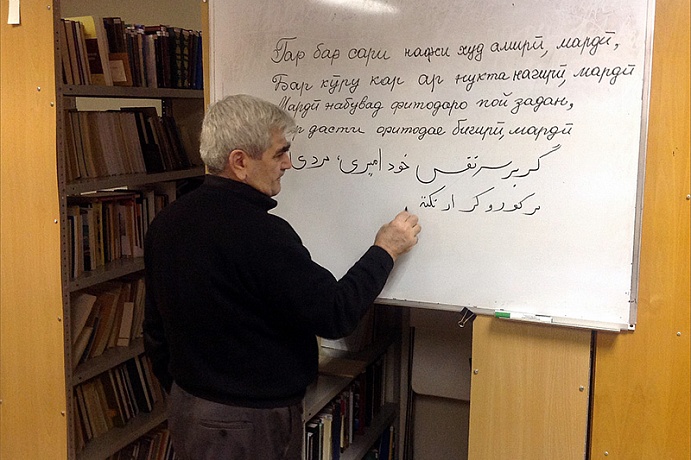 Гар бар сари нафси худ амирӣ, мардӣ,
Бар кӯру кар ар нукта нагирӣ, мардӣ
Мардӣ набувад фитодаро пой задан,
дасти фитодае бигирӣ, мардӣ
گر بر سر نفس خود امیری، مردی
بر کور و کر ار نکته